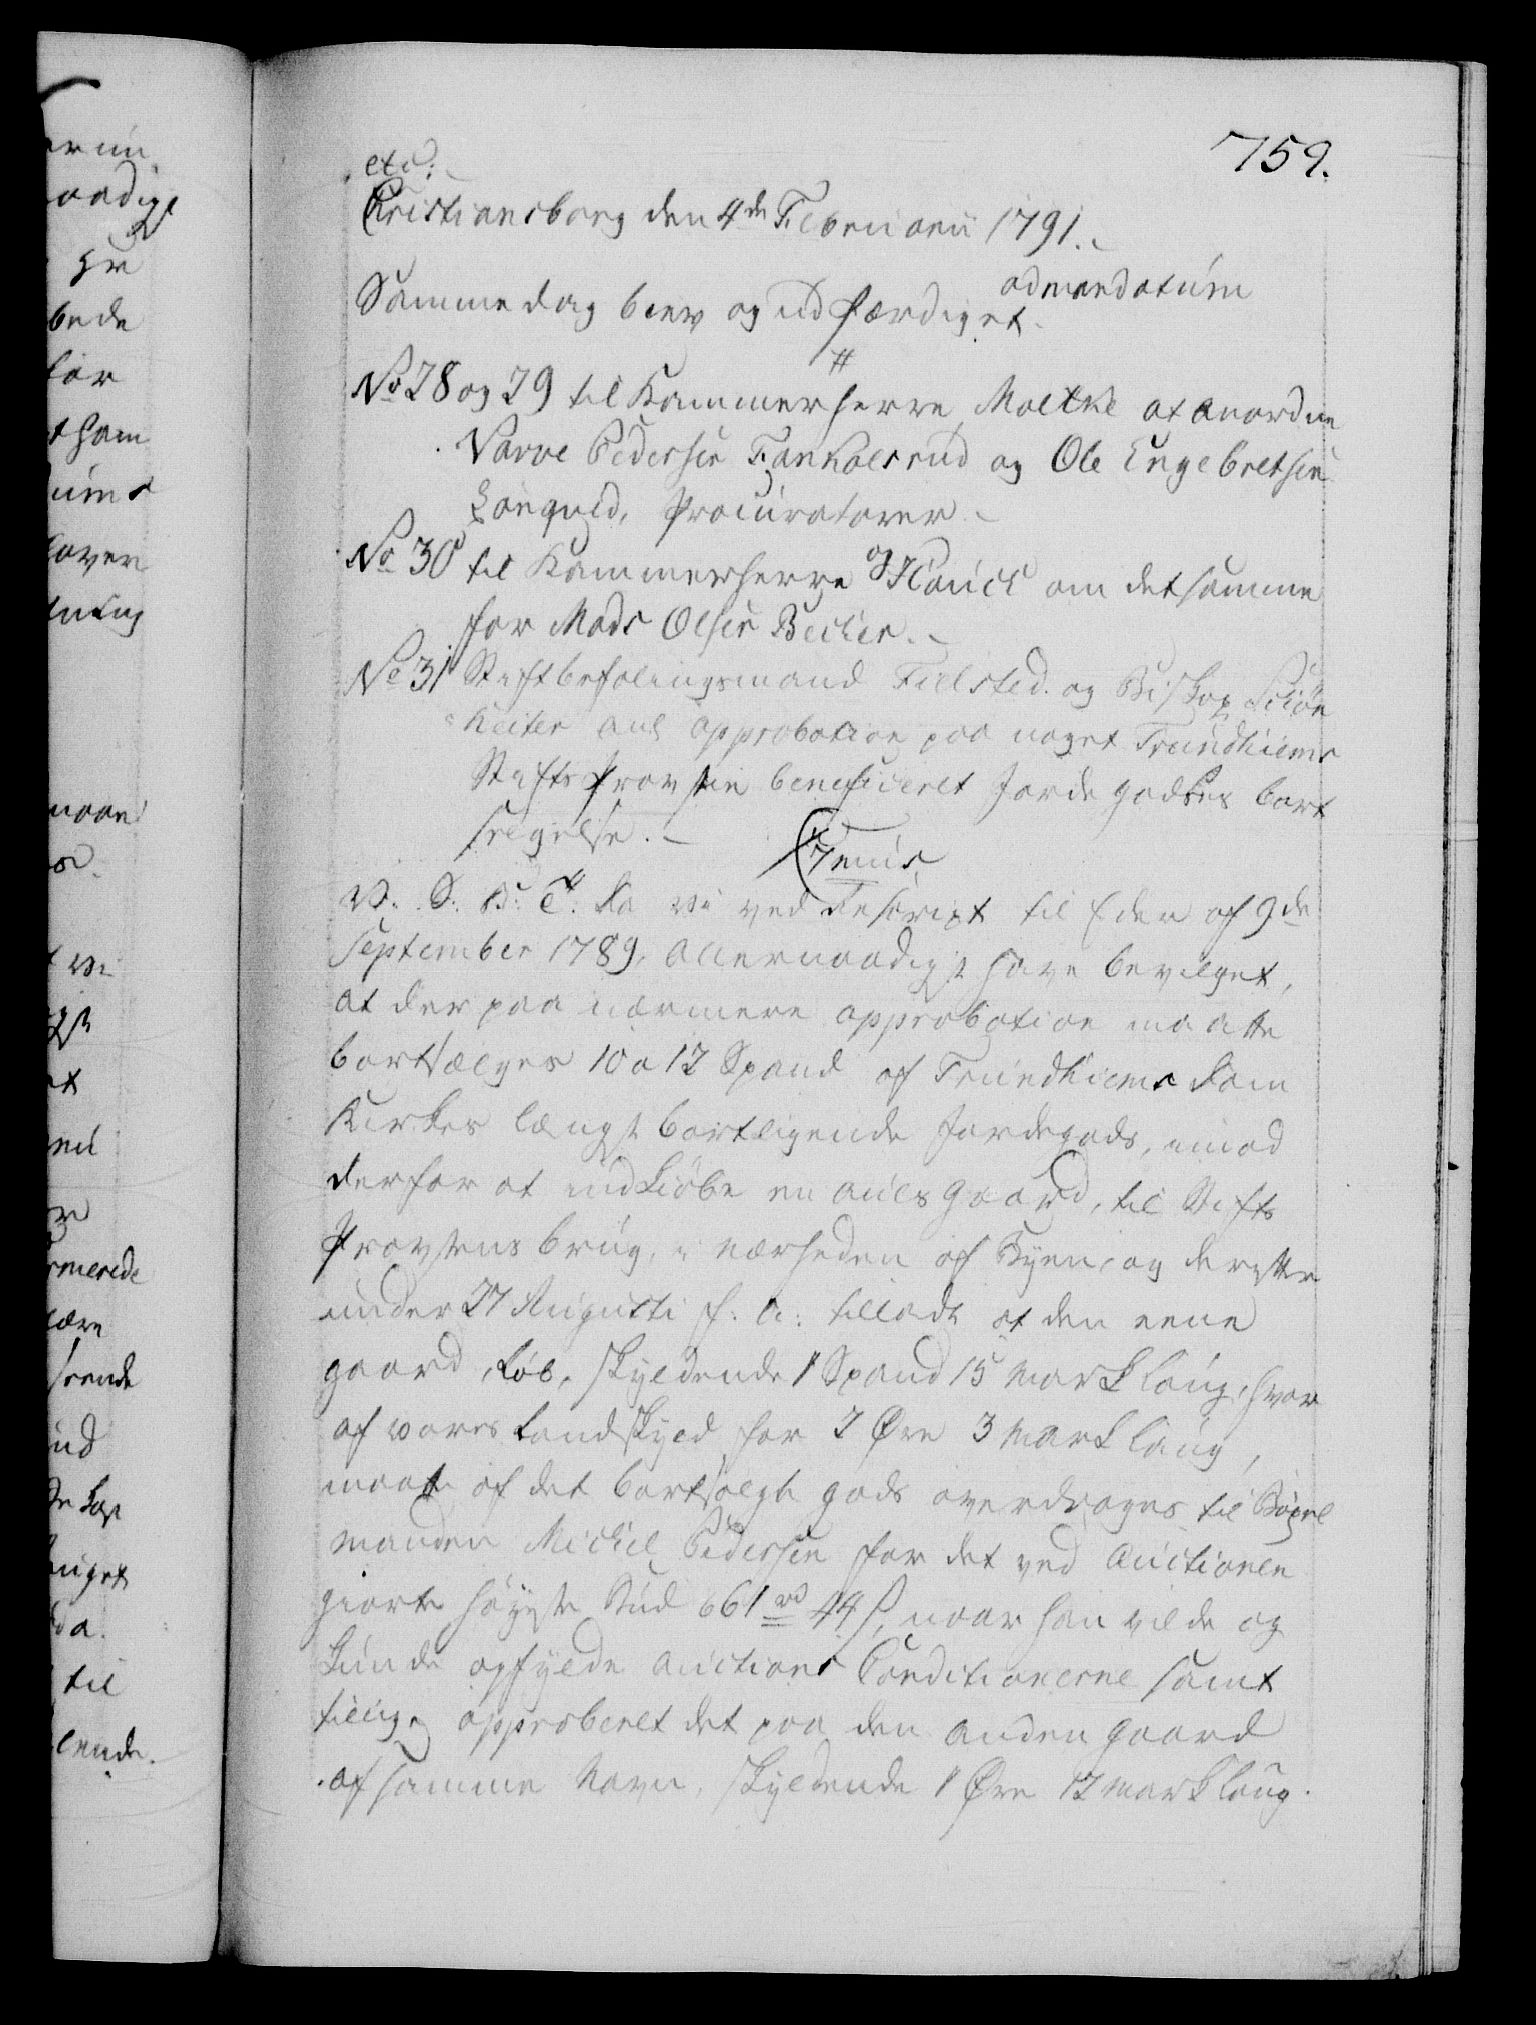 759.
etc:
Christiansborg den 4de Februarii 1791.
ad mandatum
Samme dag blev og udfærdiget.
No 28 og 29 til Kammerherre Moltke at anordne
Narve Pedersen og Ole Engebretsen
Procuratorer
No 30 til Kammerherre Hauch om det samme
for Mads Olsen Becher.
No 31 Stiftbefalingsmand Fieldsted og Biskop Schøn
heiter ang approbation paa noget Trundhiems
Stifts Provstie beneficeret Jordegodses bort
sælgelse.
V. S. B: T: Da Vi ved Rescript til Eder af 9de
September 1789, allernaadigst have bevilget,
at der paa nærmere approbation maatte
bortsælges 10 a 12 Spand af Trundhiems Dom
Kirkes længst bortligende Jordegods, imod
derfor at indkiøbe en aulsgaard, til Stifts
Provstens brug, i nærheden af Byen, og derefter
under 27 Augusti f: a: tilladt at den eene
gaard, skyldende 1 Spand 15 Marklaug, hvor
af vores Landskyld for 2 Øre 3 Marklaug,
maate af det bortsolgte gods overdrages til Bøxel
manden Michel Pedersen for det ved Auctionen
giorte høyeste Bud 661 rd 44 s, naar han vilde og
kunde opfylde Auctions Conditionerne samt
tillige approberet det paa den anden gaard
af samme Navn, skyldende 1 Øre 12 Marklaug